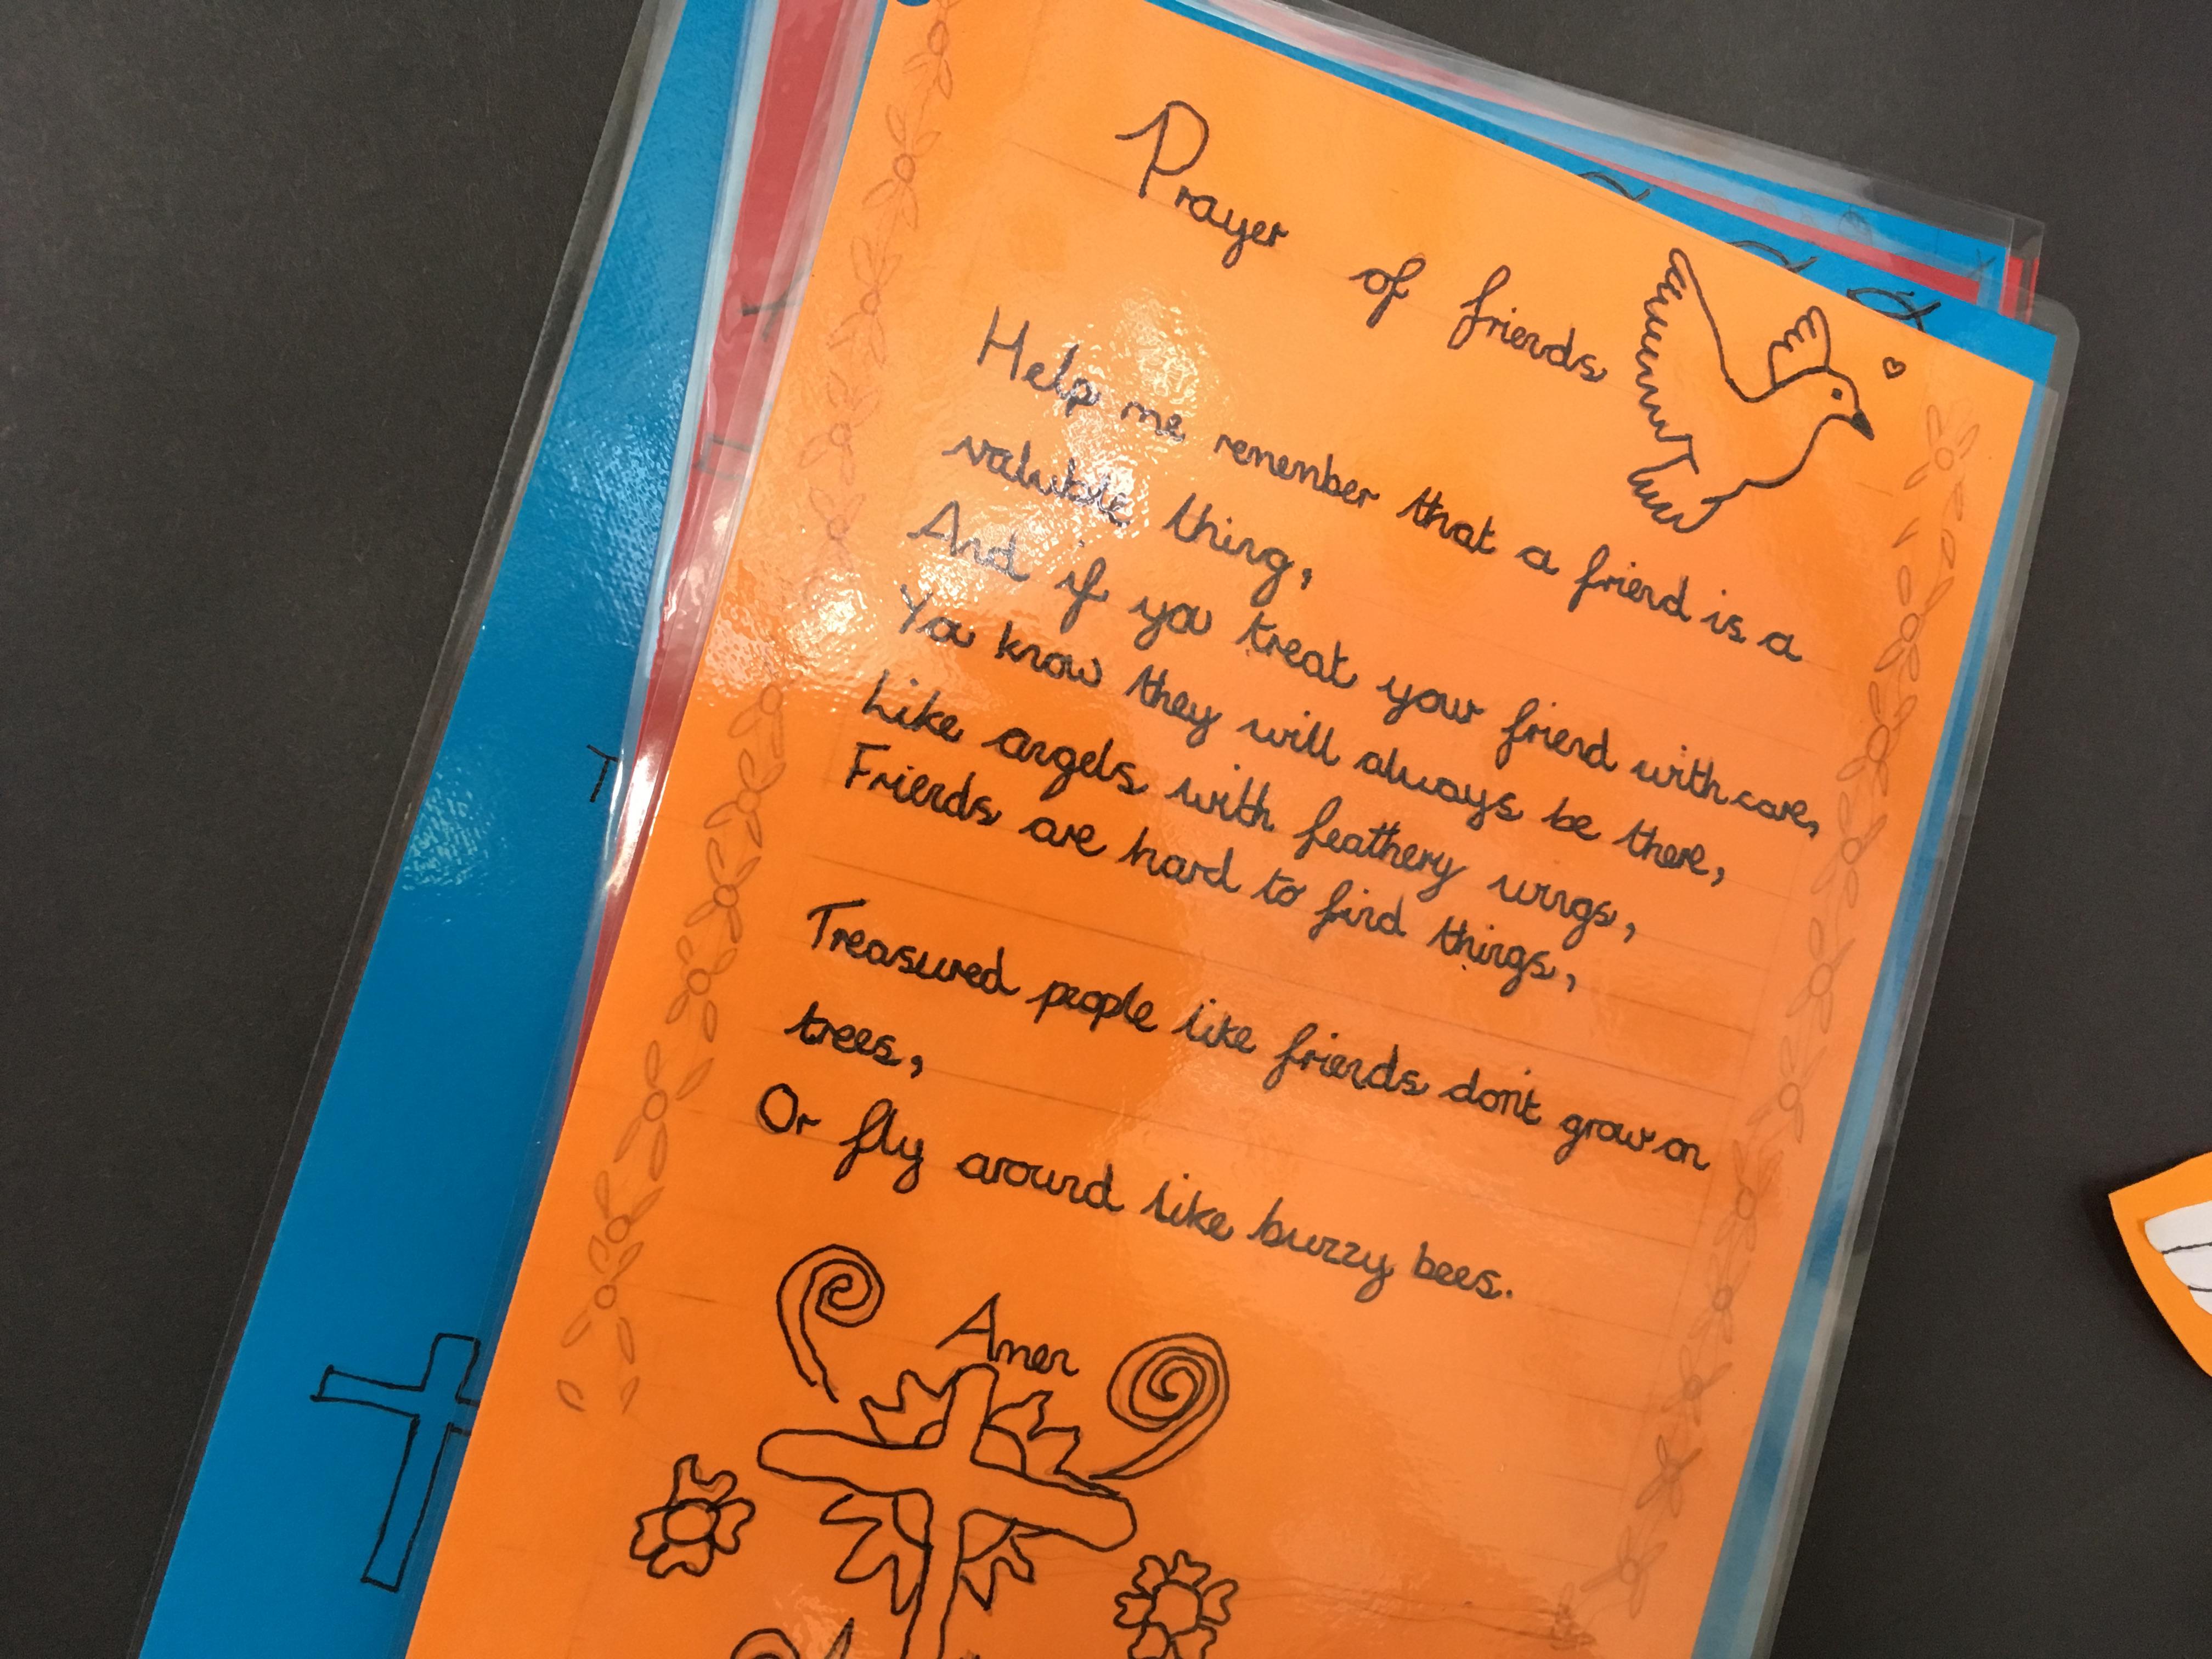 Prayer of friends
Help me remember that a friend is a
valuble thing,
And if you treat your friend with care,
You know they will always be there,
Like angels with feathery wings,
Friends are hard to find things,
Treasured people like friends don't grow on
trees,
Or fly around like buzzy bees.
Amen
T